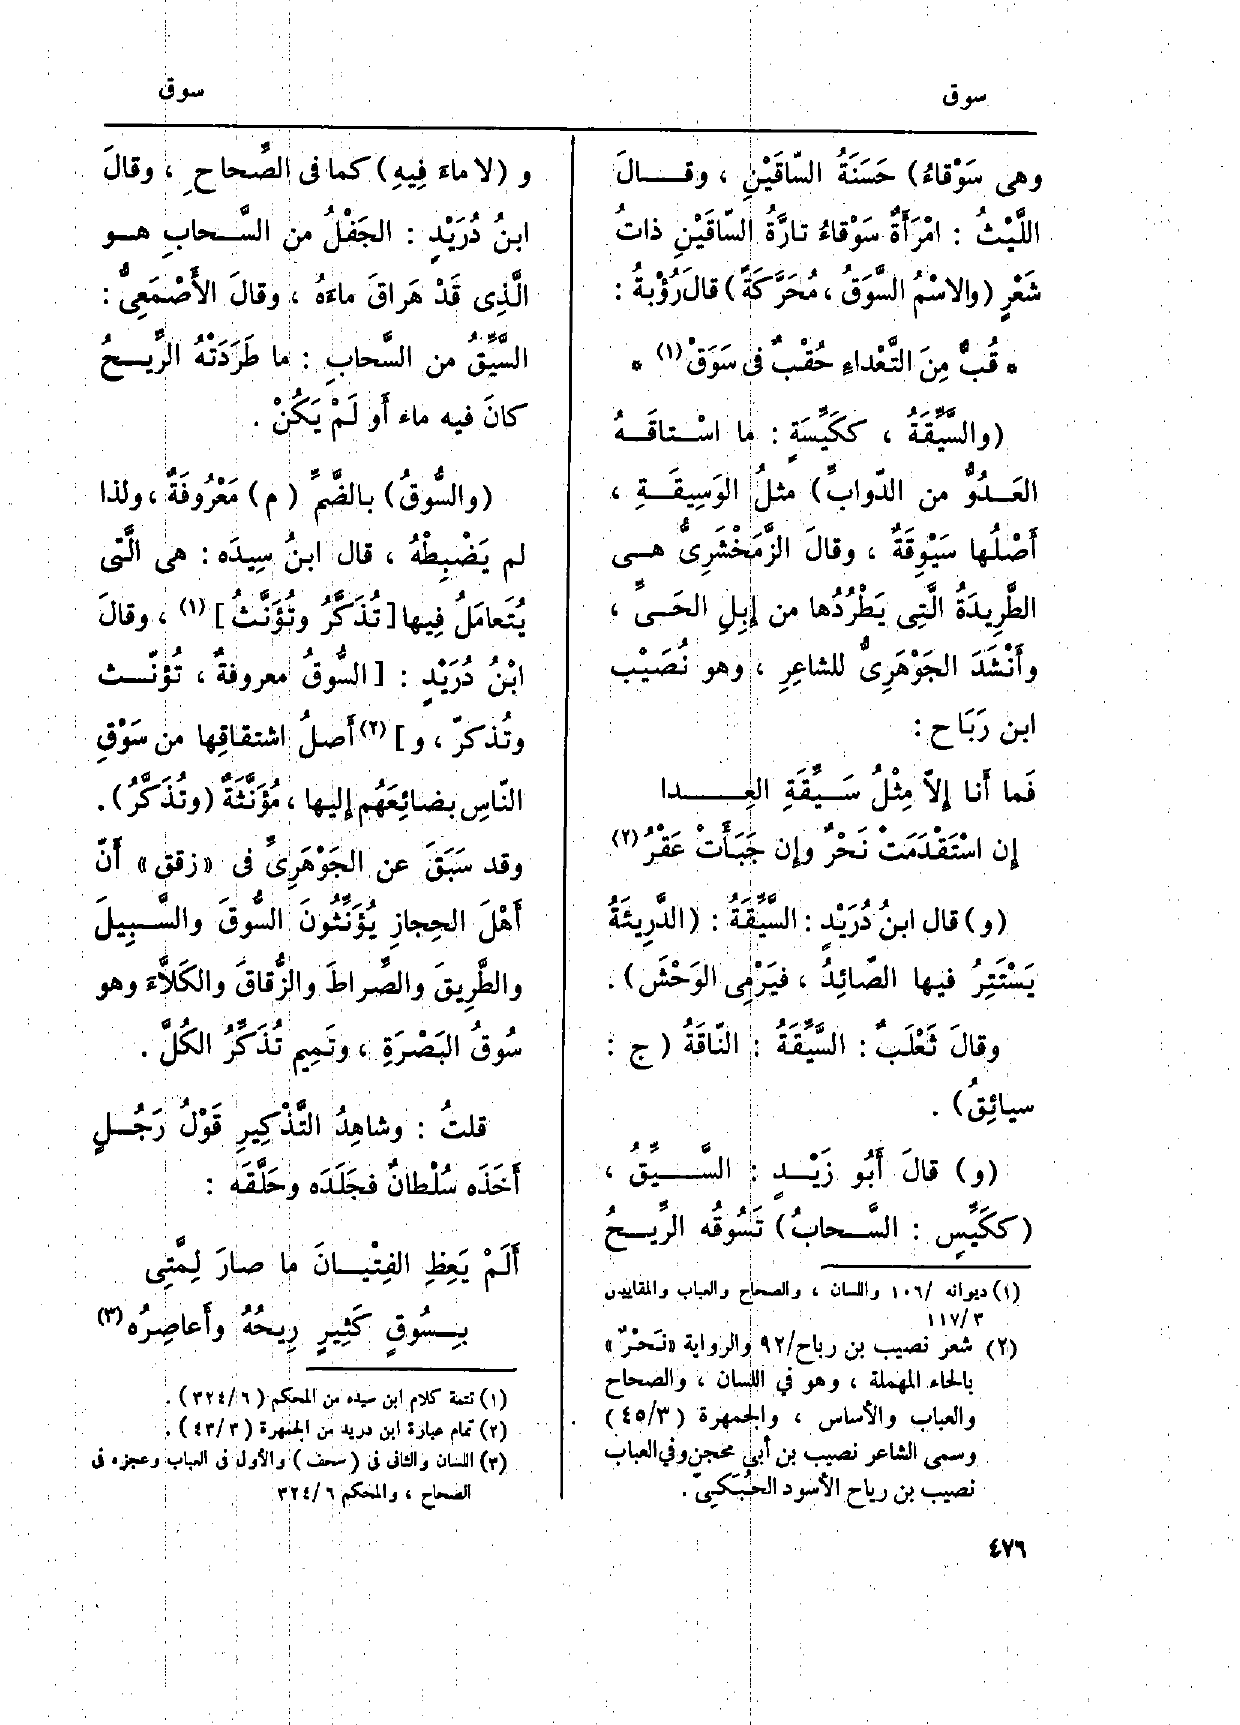 سوق
سوق
وهى سَوْقاءُ) حَسَنَةُ السّاقَيْنِ ، وقـــالَ
اللَّيْثُ : امْرَأَةٌ سَوْقاءُ تارَّةُ السّاقَيْنِ ذاتُ
شَعْرٍ (والاسْمُ السَّوَقُ ، مُحَرَّكَةً) قالَ رُؤْبةُ :
* قُبٌّ مِنَ التَّعْداءِ حُقْبٌ فى سَوَقْ (١) *
(والسَّيِّقَةُ ، ككَيِّسَةٍ : ما اسْـتاقَـهُ
العَـدُوُّ من الدّوابِّ) مثلُ الوَسِيقَـةِ ،
أَصْلُها سَيْوِقَةٌ ، وقالَ الزَّمَخْشَرِىُّ هـى
الطَّرِيدَةُ الَّتِى يَطْرُدُها من إِبِلِ الحَىِّ ،
وأَنْشَدَ الجَوْهَرِىُّ للشاعرِ ، وهو نُصَيْب
ابن رَبَاح :
فَما أَنا إِلاّ مِثْلُ سَـيِّقَةِ العِــدا
إِن اسْتَقْدَمَتْ نَحْرٌ وإِن جَبَأَتْ عَقْرُ (٢)
(و) قال ابنُ دُرَيْدٍ : السَّيِّقَةُ : (الدَّرِيئَةُ
يَسْتَتِرُ فيها الصّائِدُ ، فيَرْمِى الوَحْشَ) .
وقالَ ثَعْلَبٌ : السَّيِّقَةُ : النّاقَةُ ( ج :
سيائِقُ) .
(و) قالَ أَبُو زَيْـدٍ : السَّـــيِّقُ ،
(ككَيِّسٍ : السَّـحابُ) تَسُوقُه الرِّيـحُ
(١) ديوانه /١٠٦ واللسان ، والصحاح والعباب والمقاييس
٣ /١١٧
(٢) شعر نصيب بن رباح/٩٢ والرواية «نَحْرٌ»
بالحاء المهملة ، وهو في اللسان ، والصحاح
والعباب والأساس ، والجمهرة (٤٥/٣)
وسمى الشاعر نصيب بن أبي محجن وفي العباب
نصيب بن رياح الأسود الحُبَكيّ .
و (لا ماءَ فِيهِ) كما فى الصِّحاحِ ، وقالَ
ابنُ دُرَيْدٍ : الجَفْلُ من السَّـحابِ هـو
الَّذِى قَدْ هَراقَ ماءَهُ ، وقالَ الأَصْمَعِىُّ :
السَّيِّقُ من السَّحابِ : ما طَرَدَتْهُ الرِّيـحُ
كانَ فيه ماء أَو لَمْ يَكُنْ .
(والسُّوقُ) بالضَّمِّ ( م ) مَعْرُوفَةٌ ، ولذا
لم يَضْبِطْهُ ، قال ابنُ سِيدَه : هى الَّتى
يُتَعامَلُ فِيها [ تُذَكَّرُ وتُؤَنَّثُ ] (١) ، وقالَ
ابْنُ دُرَيْدٍ : [ السُّوقُ معروفةٌ ، تُؤنّـث
وتُذكرّ ، و ] (٢) أَصلُ اشتقاقِها من سَوْقِ
النّاسِ بضائِعَهُم إِليها ، مُؤَنَّثَةٌ (وتُذَكَّرُ) .
وقد سَبَقَ عن الجَوْهَرِىِّ فى «زقق» أَنّ
أَهْلَ الحِجازِ يُؤَنِّثُونَ السُّوقَ والسَّـبِيلَ
والطَّرِيقَ والصِّراطَ والزُّقاقَ والكَلاَّءَ وهو
سُوقُ البَصْرَةِ ، وتَمِيم تُذَكِّرُ الكُلَّ .
قلتُ : وشاهِدُ التَّذْكِيرِ قَوْلُ رَجُـلٍ
أَخَذَه سُلْطانٌ فجَلَدَه وحَلَّقَه :
أَلَمْ يَعِظِ الفِتْيــانَ ما صارَ لِمَّتِى
بِـسُوقٍ كَثِيرٍ رِيحُهُ وأَعاصِرُه (٣)
(١) تتمة كلام ابن سيده من المحكم ( ٦/ ٣٢٤ ) .
(٢) تمام عبارة ابن دريد من الجمهرة ( ٣/ ٤٣ ) .
(٣) اللسان والثانى فى ( سحف ) والأول فى العباب وعجزه فى
الصحاح ، والمحكم ٦/ ٣٢٤
٤٧٦